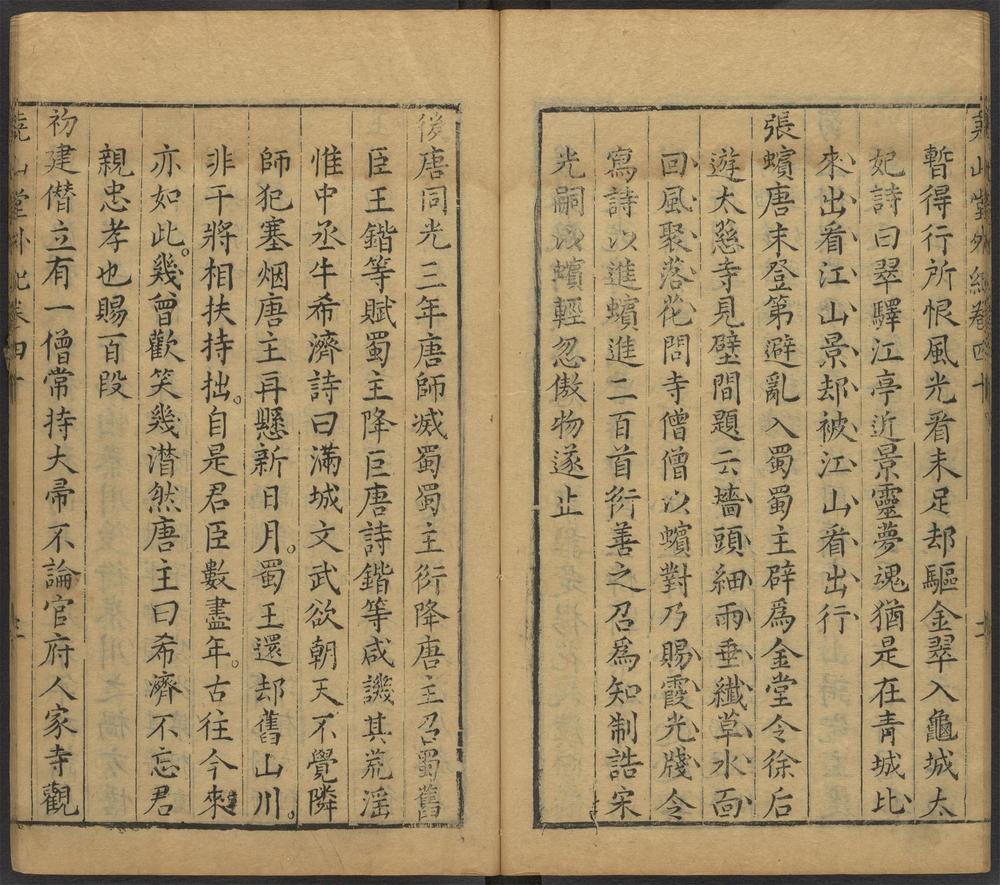 暫得行所恨風光看未足却驅金翠入龜城太
妃詩曰翠驛江亭近景靈夢魂猶是在青城比
來出看江山景却被江山看出行
張蠙唐末登第避亂入蜀蜀主辟爲金堂令徐后
遊大慈寺見壁間題云墻頭細雨垂纖草水面
回風聚落花問寺僧僧以蠙對乃賜霞光牋令
寫詩以進蠙進二百首衍善之召爲知制誥宋
光嗣以蠙輕忽傲物遂止
後唐同光三年唐師滅蜀蜀主衍降唐主召蜀舊
臣王鍇等賦蜀主降臣唐詩鍇等咸譏其荒淫
惟中丞牛希濟詩曰滿城文武欲朝天不覺隣
師犯塞烟唐主再懸新日月蜀王還却舊山川
非干將相扶持拙自是君臣數盡年古往今來
亦如此幾曾歡笑幾潸然唐主曰希濟不忘君
親忠孝也賜百段
初建僣立有一僧常持大帚不論官府人家寺觀
堯山堂外紀卷四十